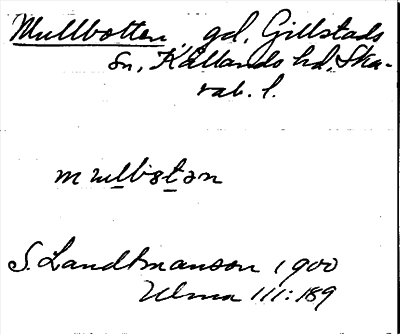 Mullbotten, gd, Gillstads
sn, Kållands hd, Ska-
rab. l.
mullbotən
S. Landtmanson 1900
Ulma 111:189